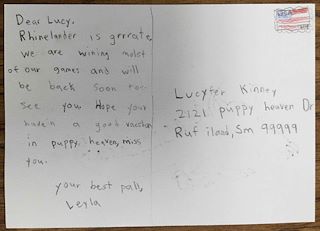 Dear Lucy,
Rhinelander is grrrate
we are wining molst
of our games and will
be back soon to
see you. Hope your
havein a good vacation
in puppy heaven, miss
you.
your best pall,
Leyla
USA
Lucyfer Kinney
2121 puppy heaven Dr
Ruf iland, Sm 99999